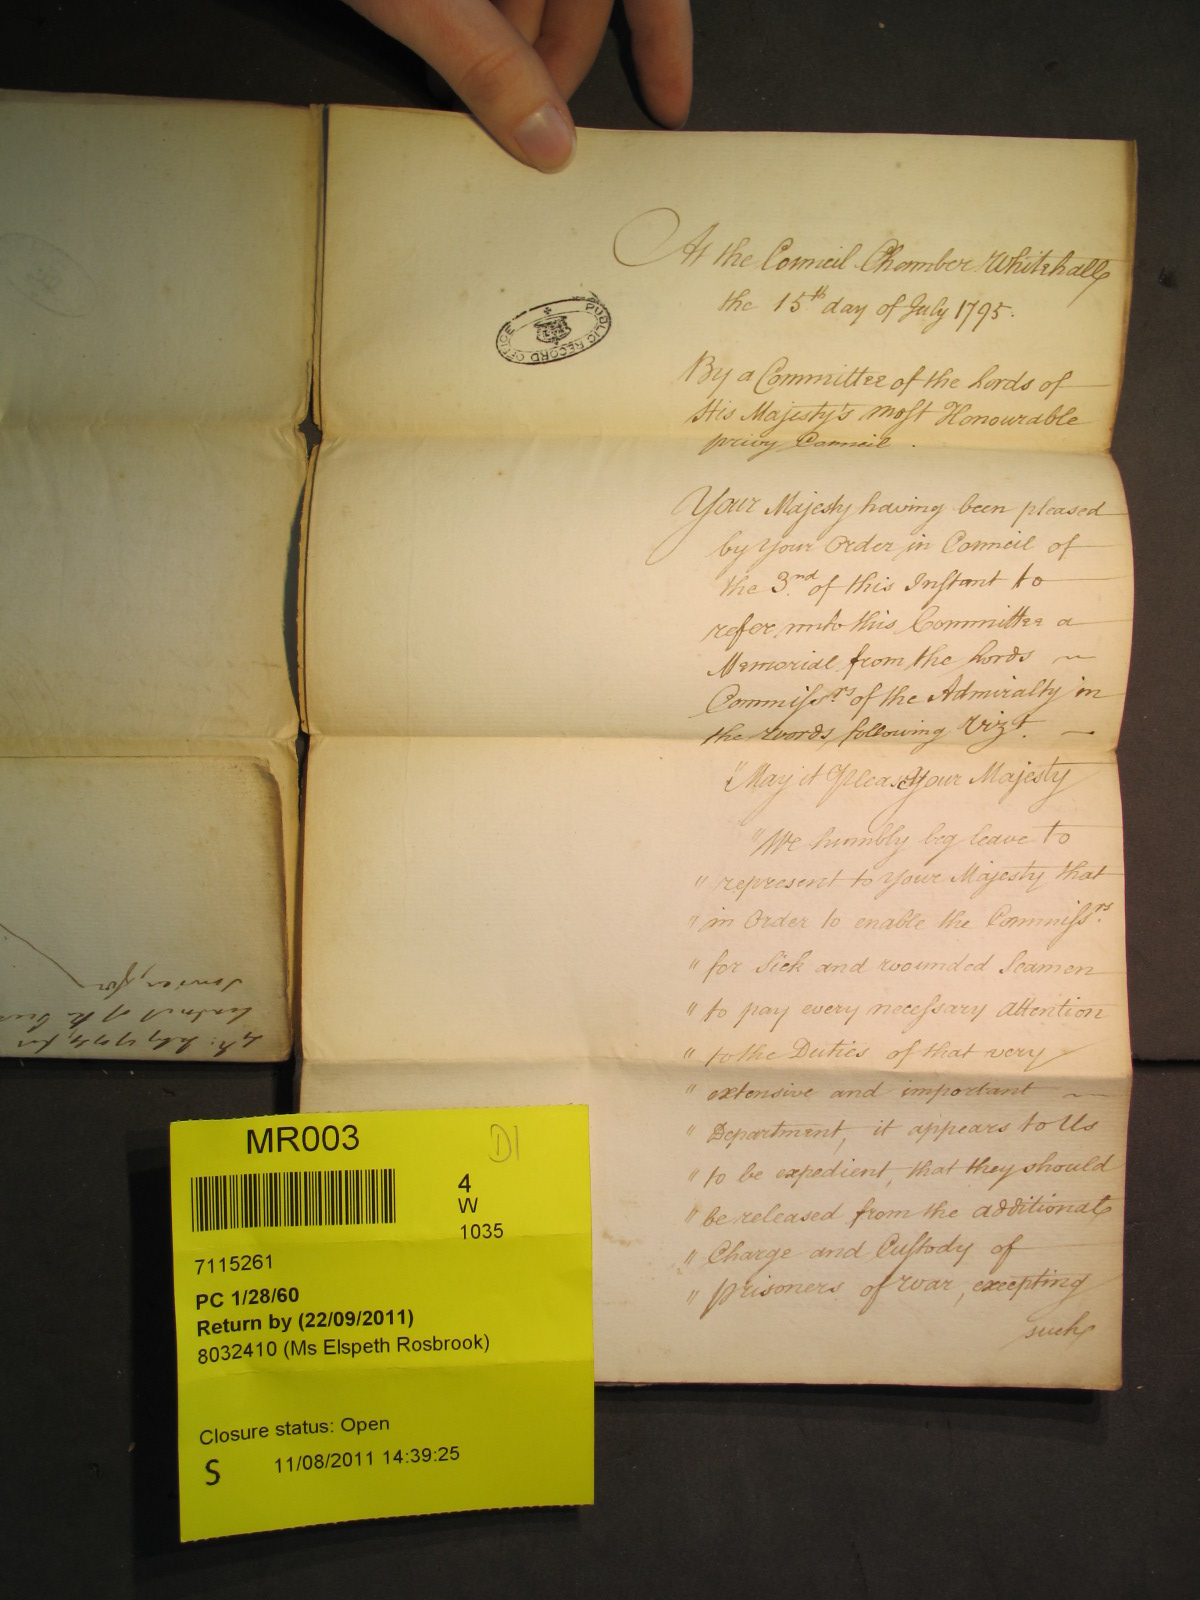 At the Council Chamber Whitehall
the 15th day of July 1795.
By a Committee of the Lords of
His Majesty's most Honourable
privy Council.
Your Majesty having been pleased
by Your Order in Council of
the 3.nd of this Instant to
refer unto this Committee a
Memorial from the Lords
Commissrs of the Admiralty in
the words following Vizt.
"May it Please Your Majesty
"We humbly beg leave to
" represent to Your Majesty that
" in Order to enable the Commissrs.
" for Sick and wounded Seamen
" to pay every necessary Attention
" to the Duties of that very
" extensive and important
" Department, it appears to Us
" to be expedient, that they should
" be released from the additional
" Charge and Custody of
" prisoners of War, excepting
such
PUBLIC RECORD OFFICE
MR003
D1
4
W
1035
7115261
PC 1/28/60
Return by (22/09/2011)
8032410 (Ms Elspeth Rosbrook)
Closure status: Open
S 11/08/2011 14:39:25